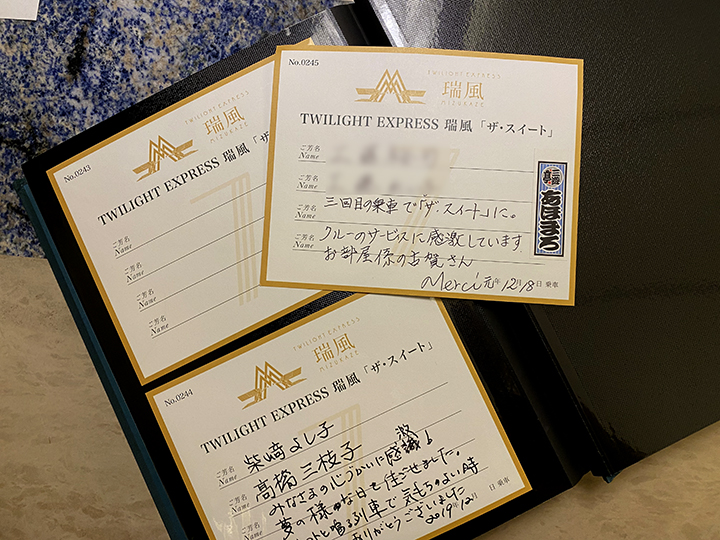 No.0243
TWILIGHT EXPRESS
瑞風
MIZUKAZE
TWILIGHT EXPRESS 瑞風「ザ・スイート」
ご芳名
Name
ご芳名
Name
ご芳名
Name
ご芳名
Name
No.0245
TWILIGHT EXPRESS
瑞風
MIZUKAZE
TWILIGHT EXPRESS 瑞風「ザ・スイート」
ご芳名
Name
ご芳名
Name
ご芳名
Name 三回目の乗車で「ザ・スイート」に。
ご芳名
Name クルーのサービスに感激しています
お部屋係の古賀さん
Merci 元年12月18日 乗車
あほまろ
No.0244
TWILIGHT EXPRESS
瑞風
MIZUKAZE
TWILIGHT EXPRESS 瑞風「ザ・スイート」
ご芳名
Name 柴崎よし子
ご芳名
Name 高橋三枝子
ご芳名
Name みなさまの心づかいに感激!
ご芳名
夢の様な日を過ごせました。
と鳴る列車で気もちのよい時
ありがとうございました
2019年12月 日 乗車